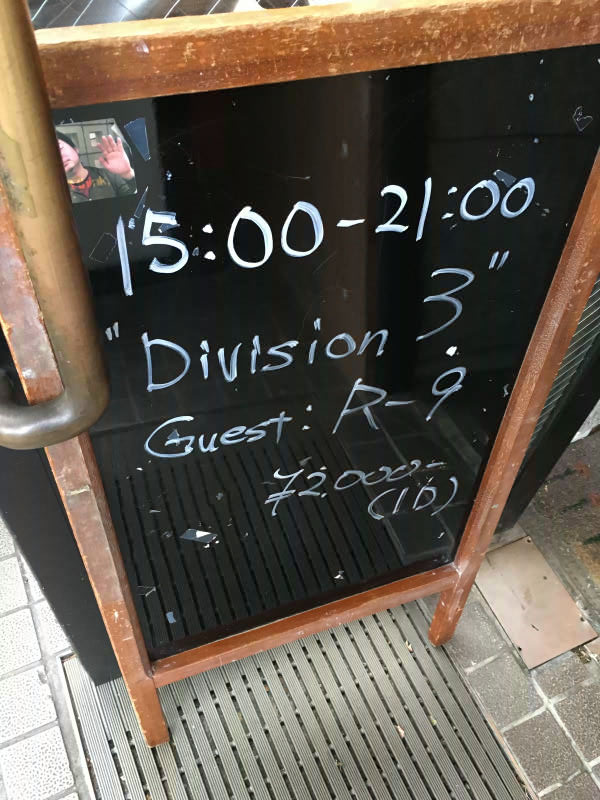 15:00-21:00
"Division 3"
Guest: R-9
¥2.000-
(1D)